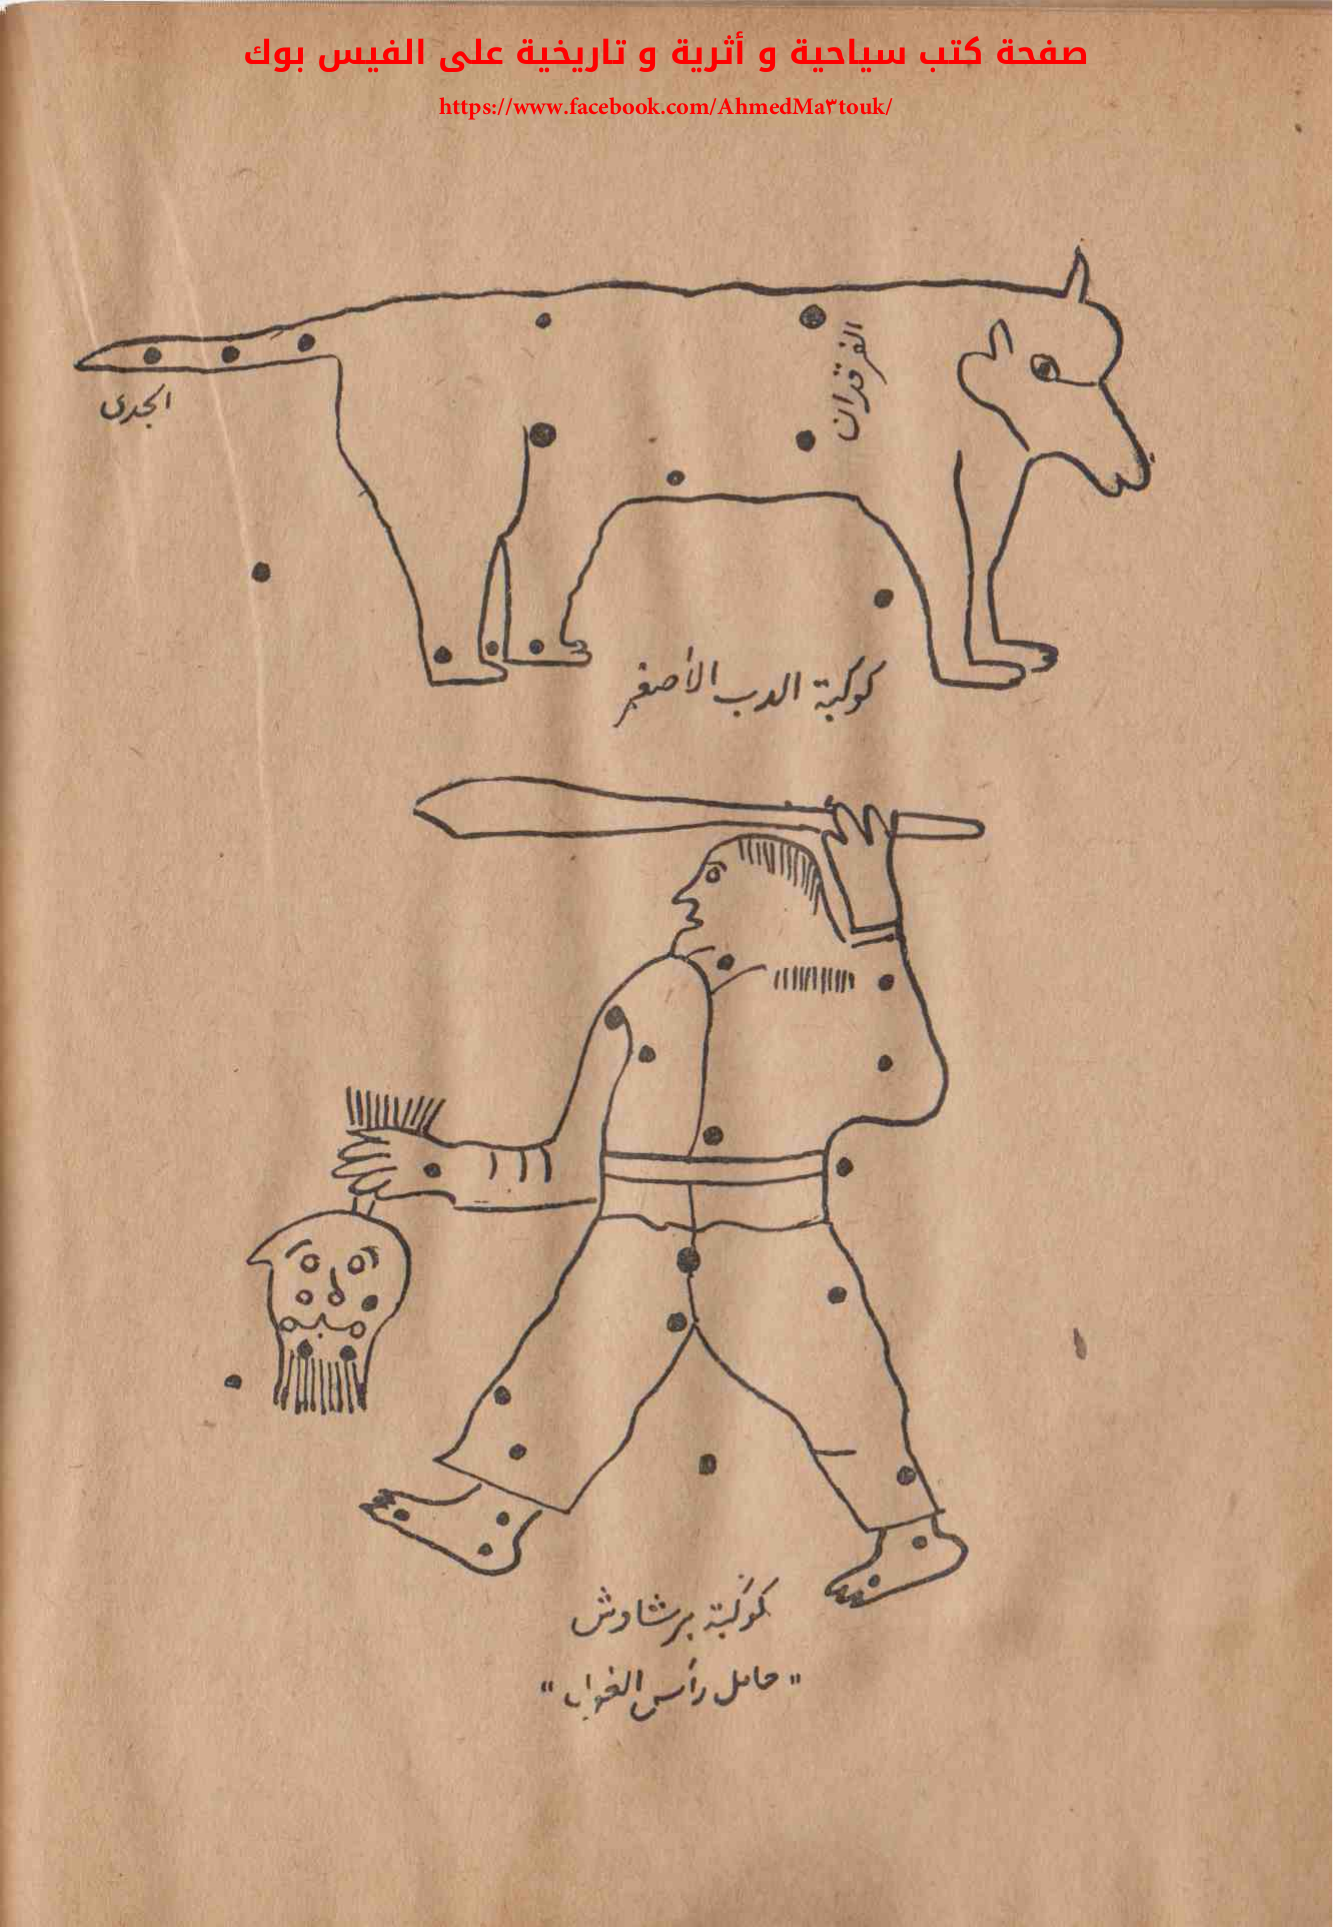 صفحة كتب سياحية و أثرية و تاريخية على الفيس بوك
https://www.facebook.com/AhmedMa٣touk/
الفرقدان
الجدى
كوكبة الدب الأصغر
كوكبة برشاوش
"حامل رأس الغول"